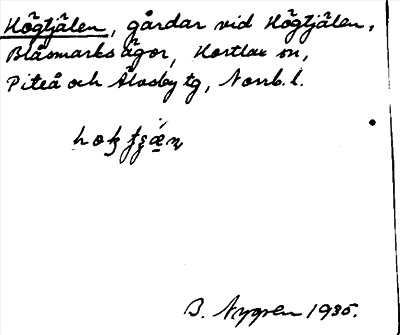 Högtjälen, gårdar vid Högtjälen,
Blåsmarks ägor, Hortlax sn,
Piteå och Älvsby tg, Norrb. l.
B. Nygren 1935.